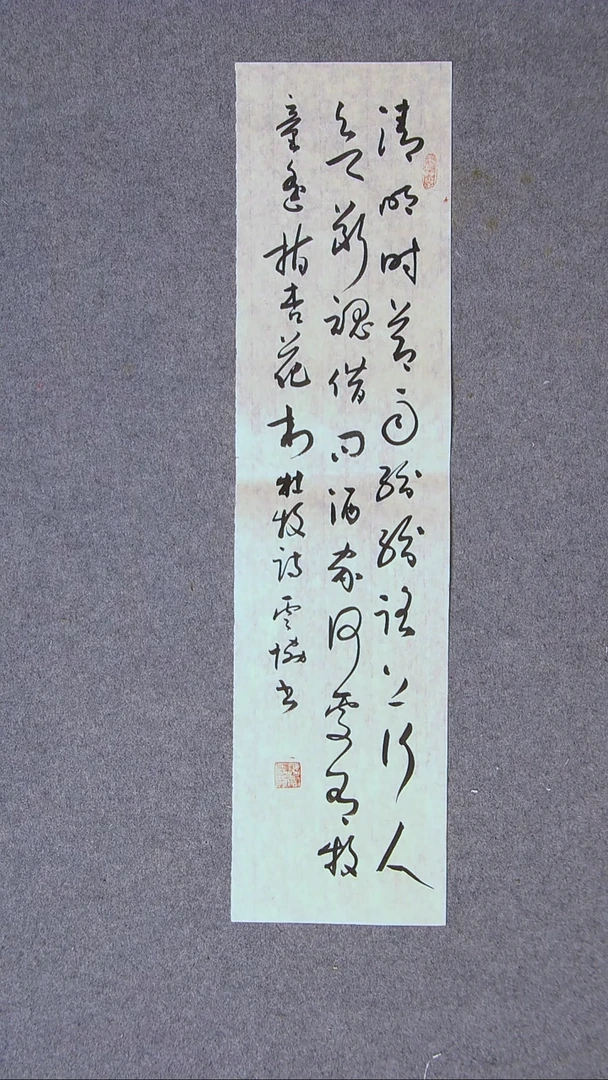 清明时节雨纷纷路上行人
欲断魂借问酒家何处有牧
童遥指杏花村杜牧诗云书